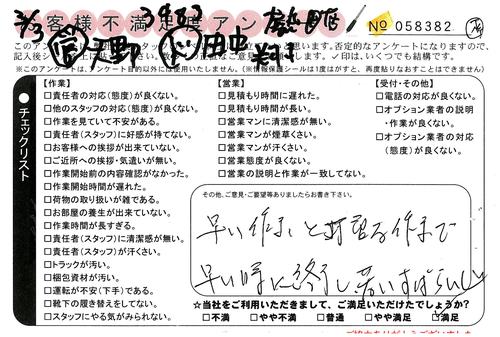 お客様不満足度アンケート
№ 058382
このアンケートは
否定的なアンケートになりますので、
です。✓印は、いくつでも結構です。
※このアンケートは、アンケート目的以外には使用いたしません。(※情報保護シールは1度はがすと、再度貼りなおすことはできません)
チェックリスト
【作業】
□責任者の対応(態度)が良くない。
□他のスタッフの対応(態度)が良くない。
□作業を見ていて不安がある。
□責任者(スタッフ)に好感が持てない。
□お客様への挨拶が出来ていない。
□ご近所への挨拶・気遣いが無い。
□作業開始前の内容確認がなかった。
□作業開始時間が遅れた。
□荷物の取り扱いが雑である。
□お部屋の養生が出来ていない。
□作業時間が長すぎる。
□責任者(スタッフ)に清潔感が無い。
□責任者(スタッフ)が汗くさい。
□トラックが汚い。
□梱包資材が汚い。
□運転が不安(下手)である。
□靴下の履き替えをしてない。
□スタッフにやる気がみられない。
【営業】
□見積もり時間に遅れた。
□見積もり時間が長い。
□営業マンに清潔感が無い。
□営業マンが煙草くさい。
□営業マンが汗くさい。
□営業態度が良くない。
□営業の説明と作業が一致してない。
【受付・その他】
□電話の対応が良くない。
□オプション業者の説明
・作業が良くない。
□オプション業者の対応
(態度)が良くない。
その他、ご意見・ご要望等ありましたらお書き下さい。
早い作業
作業まで
早い時に終了し
すばらしい
☆当社をご利用いただきまして、ご満足いただけたでしょうか?
□不満 □やや不満 □普通 □やや満足 ☑満足